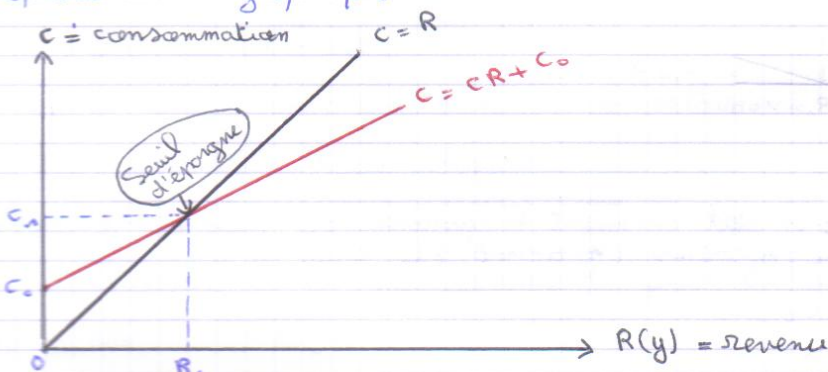 C = consommation
C = R
C = cR + C₀
Seuil
d'épargne
C₁
C₀
0
R(y) = revenu